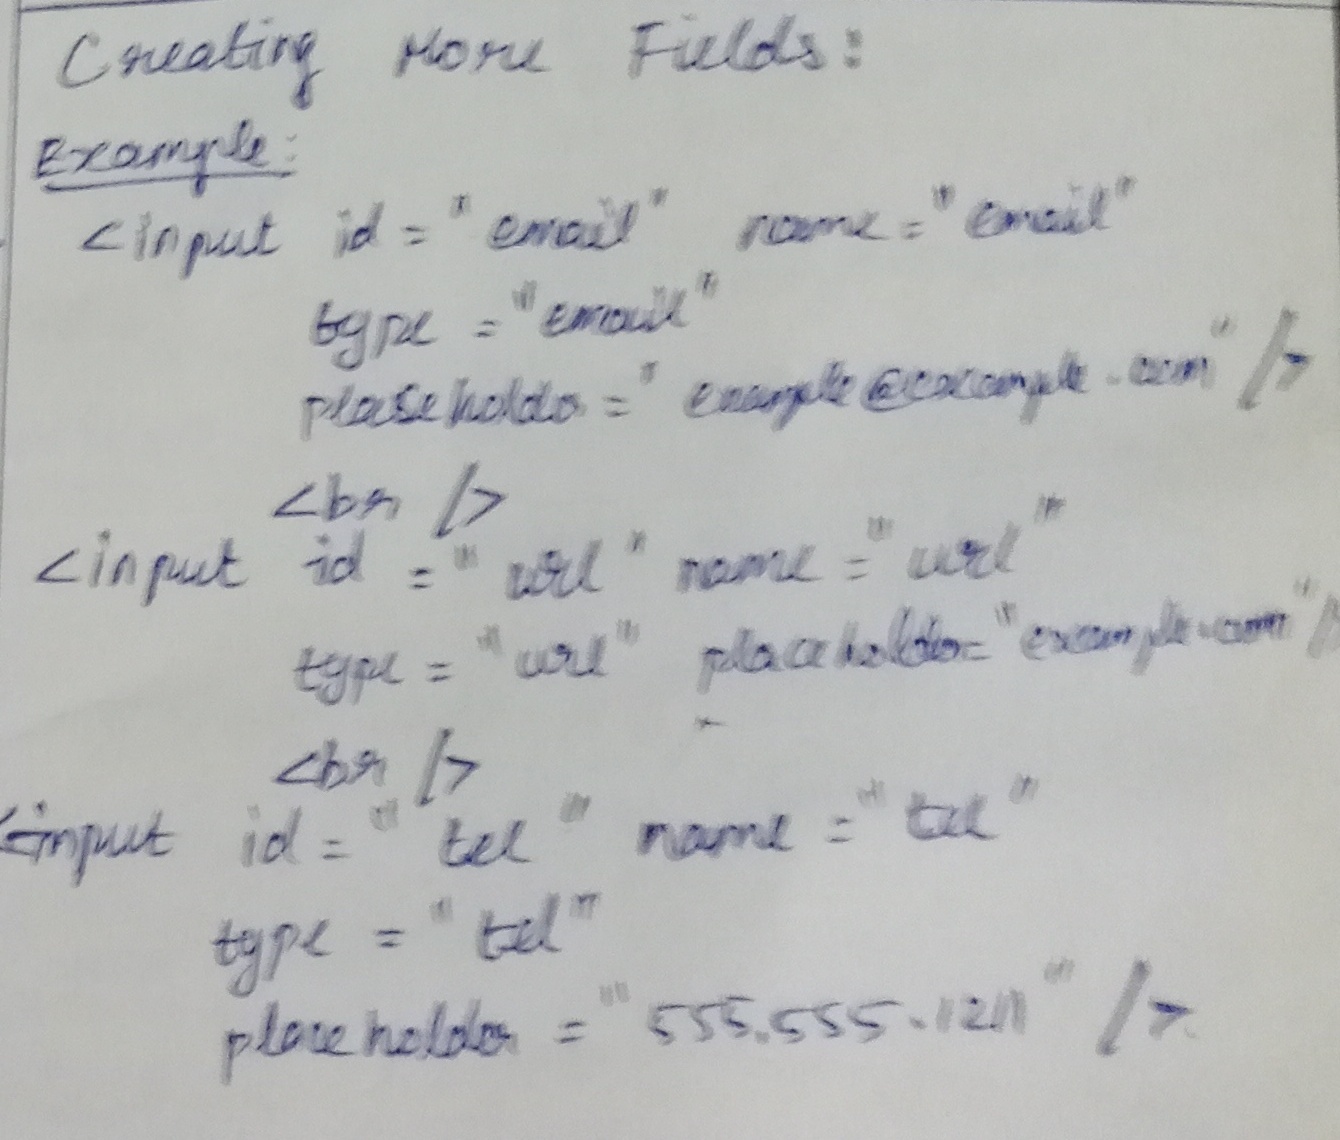 Creating More Fields:
Example:
<input id = "email" name = "email"
type = "email"
plaseholder = "example@example.com" />
<br />
<input id = "url" name = "url"
type = "url" placeholder= "example.com" />
<br />
<input id = "tel" name = "tel"
type = "tel"
placeholder = "555.555.1211" />